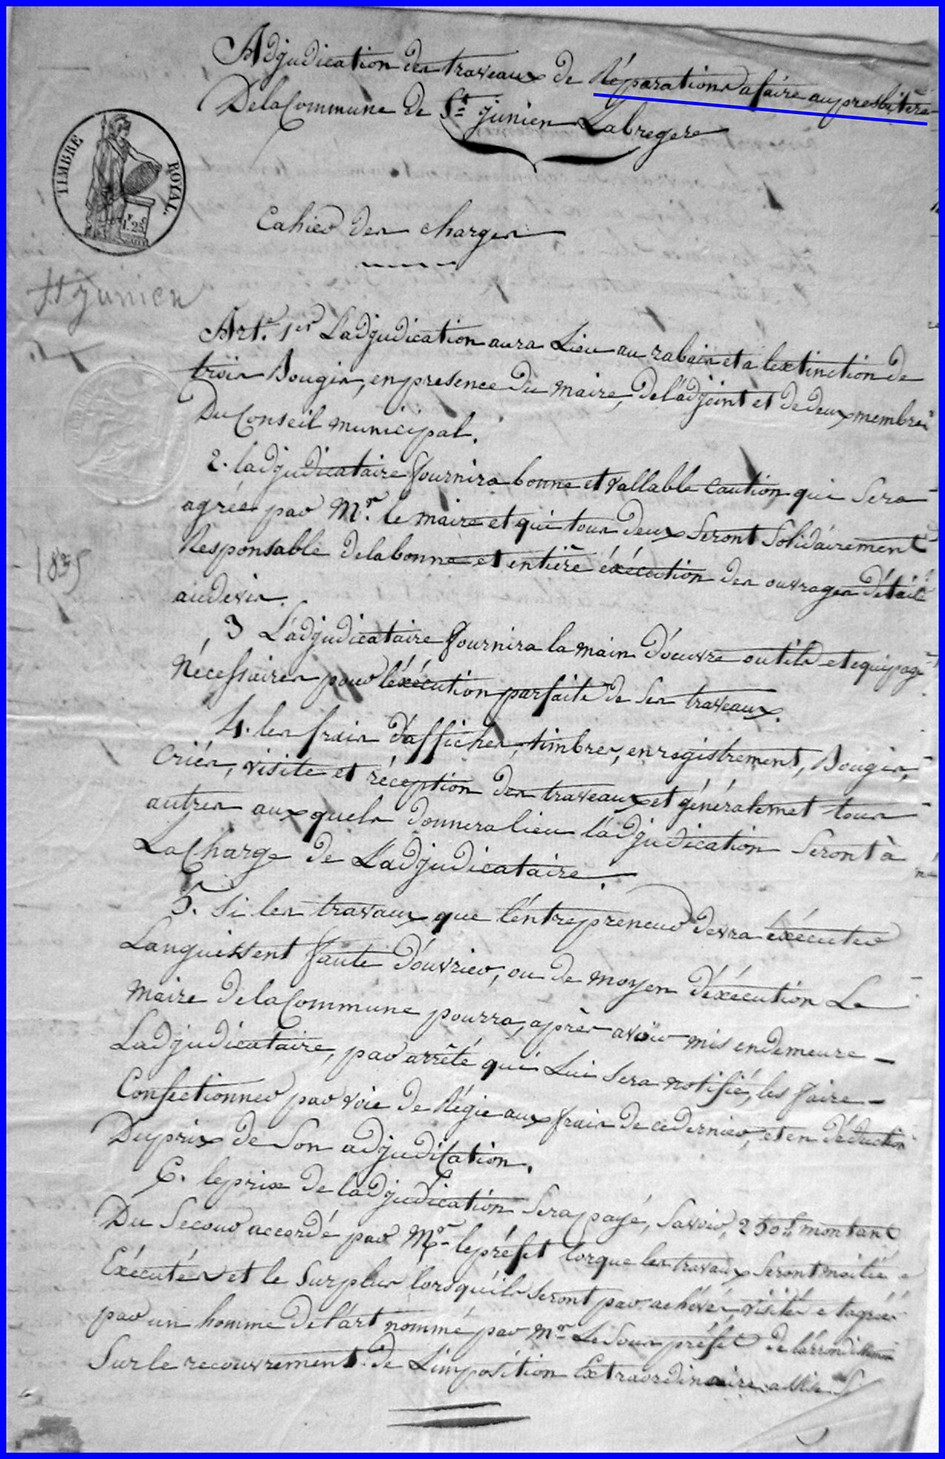 Adjudication des travaux de Réparations a faire au presbitère
De la Commune de St. junien Labregere
TIMBRE ROYAL
1.25
Cahier des charges
St junien
Art. 1er Ladjudication aura Lieu au rabais et a lextinction de
trois Bougis, en presence du maire, de l'adjoint et de deux membres
Du Conseil municipal.
2. ladjudicataire fournira bonne et vallable caution qui sera
agréé par Mr. le maire et qui tous deux seront Solidairement
Responsable de la bonne et entière éxécution des ouvrages détaillé
1835
audevis.
3 L'adjudicataire fournira la main d'œuvre outils et equipage
Nécessaires pour léxécution parfaite de ses travaux.
4. les frais d'affiches, timbres, enregistrement, Bougis,
criés, visite et réception des travaux et généralemet tous
autres aux quels donnera lieu l'adjudication seront à
La Charge de Ladjudicataire.
5. Si les travaux que l'entrepreneur devra éxécuter
Languissent faute d'ouvrier, ou de moyen d'éxécution Le
maire de la Commune pourra, après avoir mis endemeure
Ladjudicataire, par arrêté qui Lui sera notifié, les faire
Confectionner par voie de Régie aux frais de ce dernier, et en déduction
Du prix de Son adjudication.
6. le prix de ladjudication sera payé, Savoir, 250 montant
Du Secour accordé par Mr. le préfet lorque les travaux seront moitié
Exécutés et le Surplus lorsquils seront par achévés visité et agréé
par un homme de l'art nommé par Mr. Le Sous préfet de l'arrondissement
Sur le recouvrement de L'imposition Extraordinaire